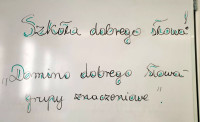 "Szkoła dobrego słowa"
"Domino dobrego słowa-
grupy znaczeniowe".